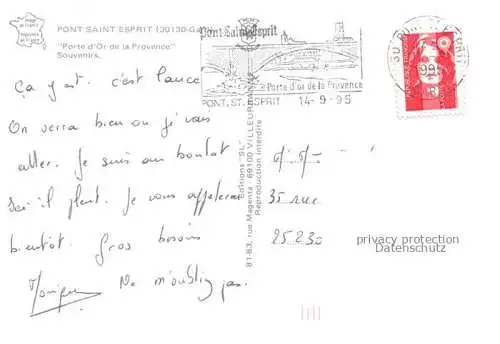 PONT SAINT ESPRIT (39130-GA
"Porte d'Or de la Provence"
Souvenirs.
Pont Saint Esprit
Porte d'or de la Provence
PONT. ST. ESPRIT 14-9-95
Ça y est. c'est lancé
On verra bien où j'y vais
aller. Je suis au boulot
ici il pleut. Je vous appellerai
bientôt. Gros bisous
Ne m'oubliez pas.
Editions "SL"
81-83, rue Magenta - 69100 VILLEURBANNE
Reproduction interdite
35 rue
25230
privacy protection
Datenschutz